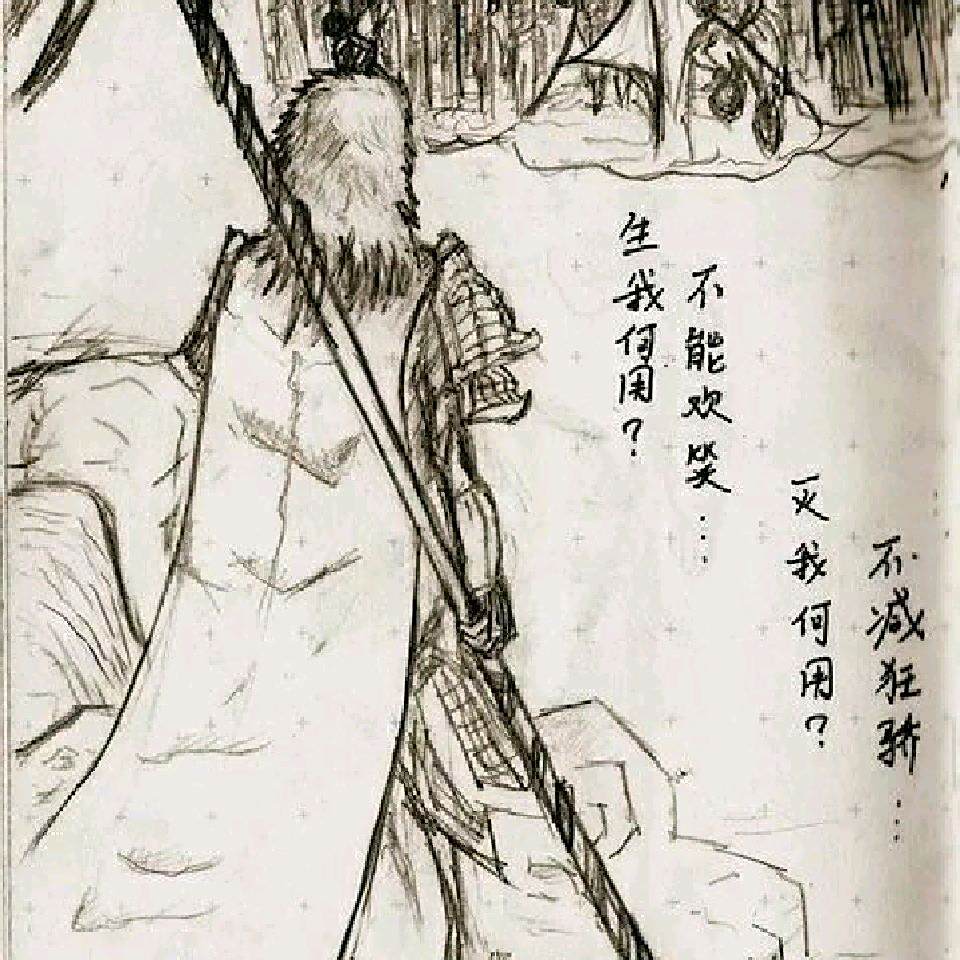 生我何用？
不能欢笑...
灭我何用？
不减狂骄...